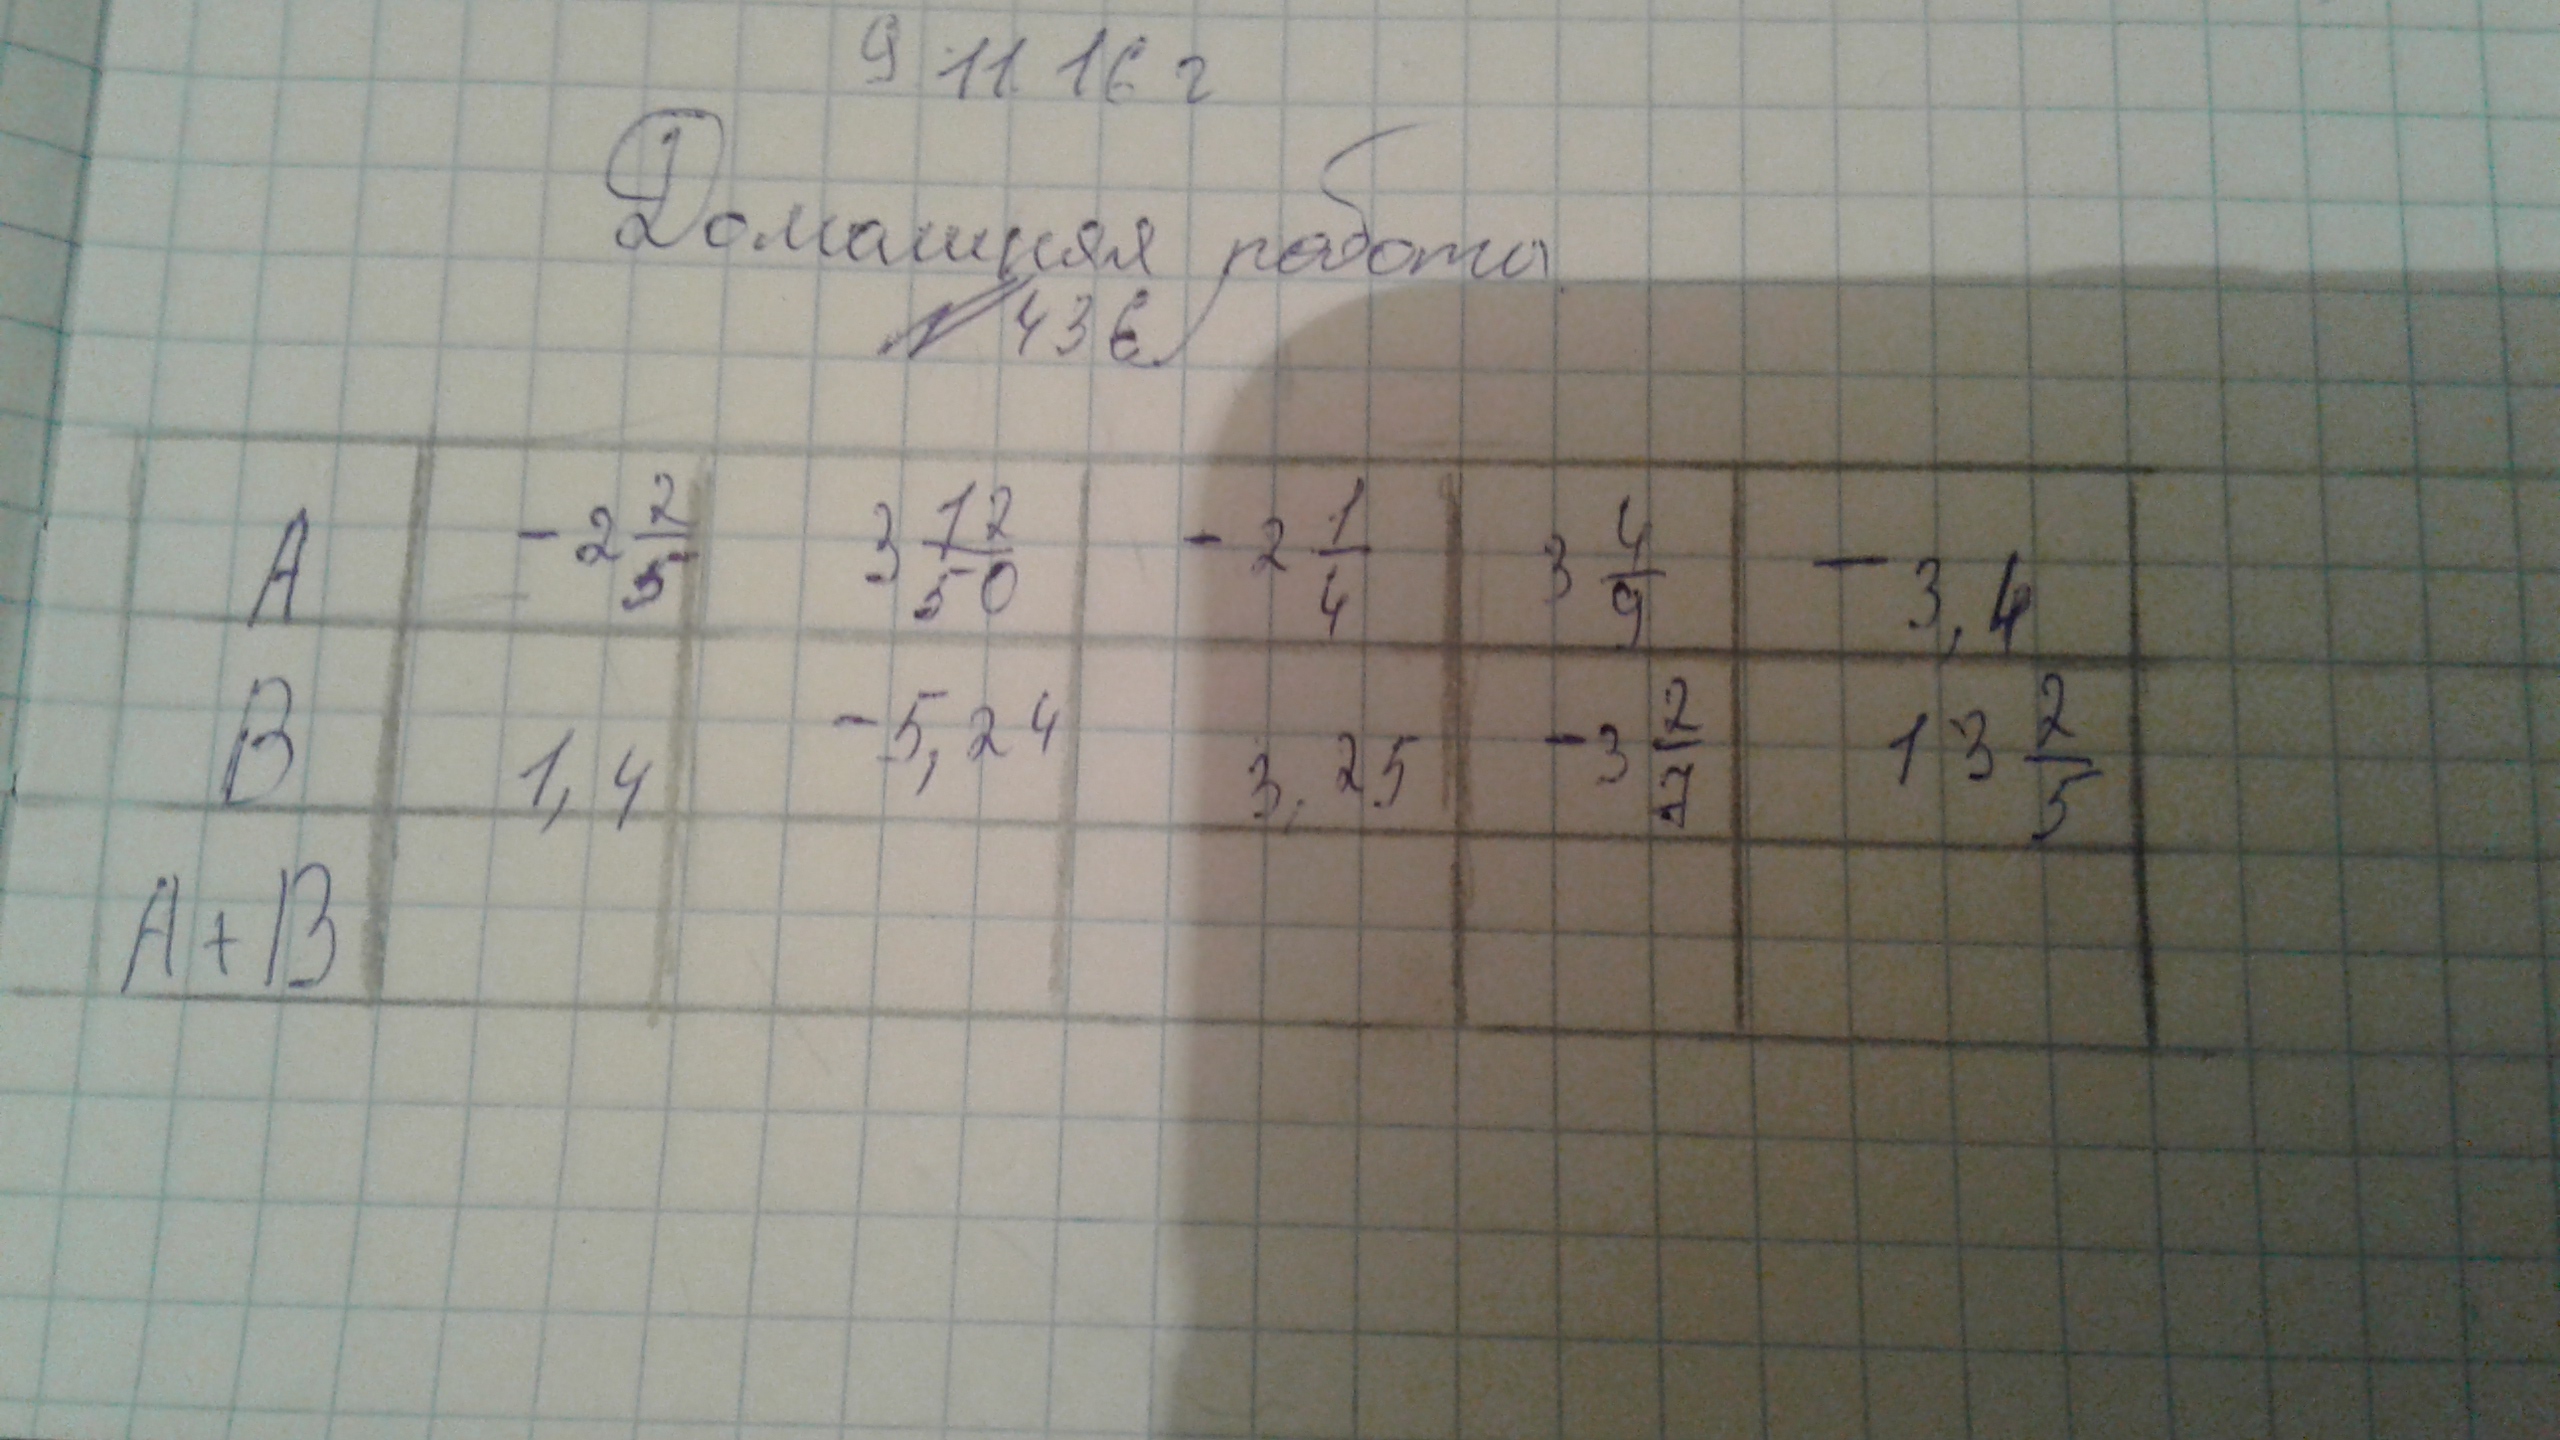 9 11 16 г
Домашняя работа
№ 436
A -2 2/5 3 12/50 -2 1/4 3 4/9 -3,4
B 1,4 -5,24 3,25 -3 2/7 13 2/5
A+B